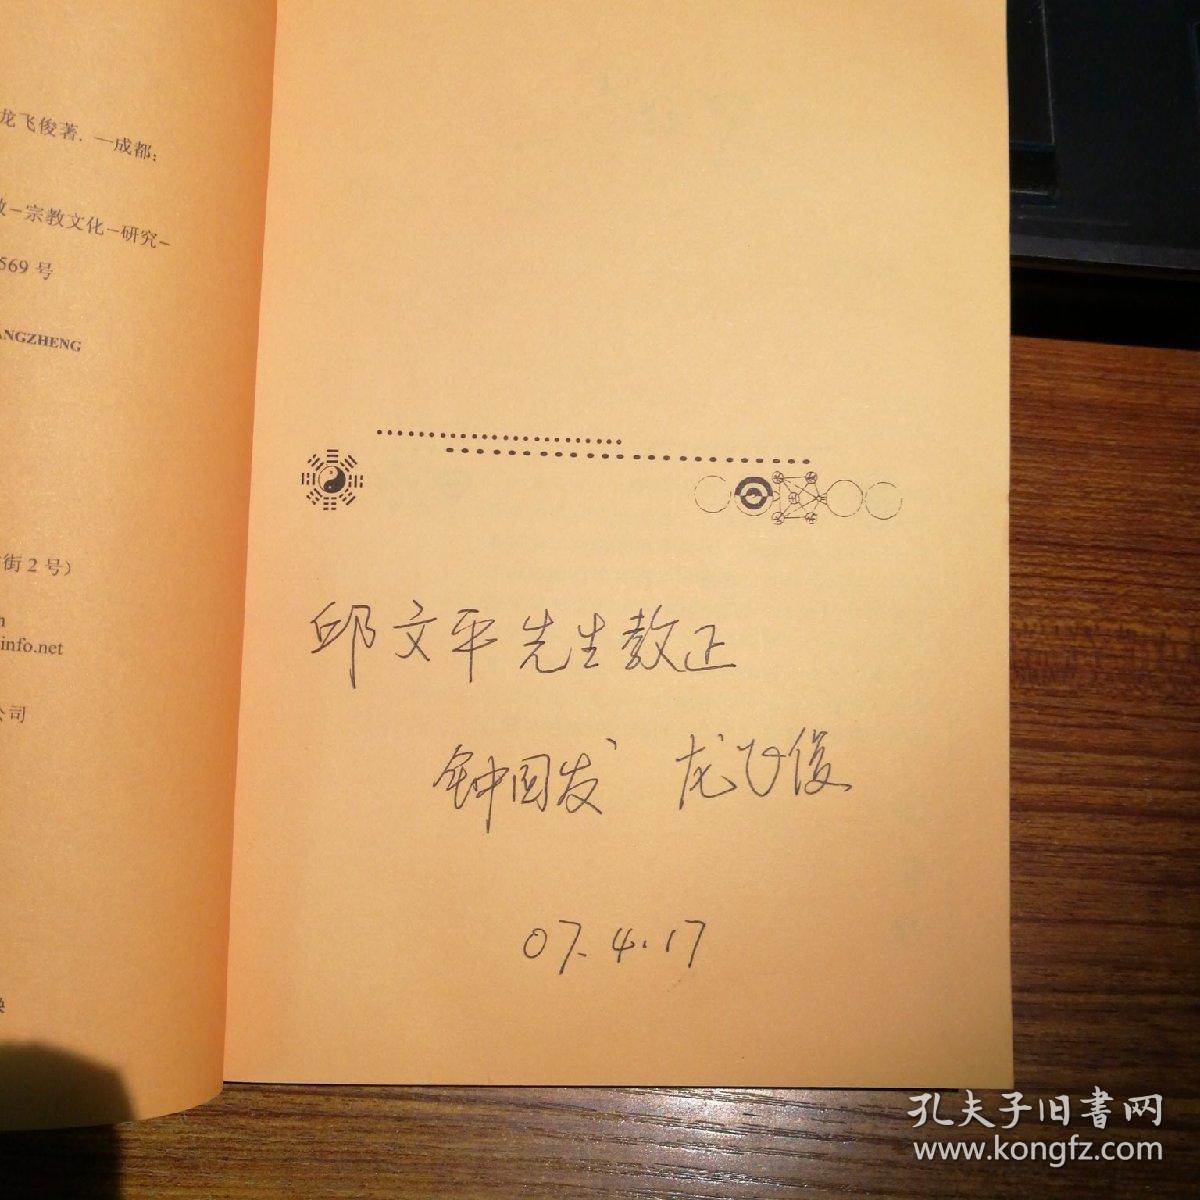 龙飞俊著. —成都:
教－宗教文化－研究－
569 号
ANGZHENG
街 2 号)
info.net
公司
邱文平先生教正
钟国发 龙飞俊
07.4.17
孔夫子旧書网
www.kongfz.com